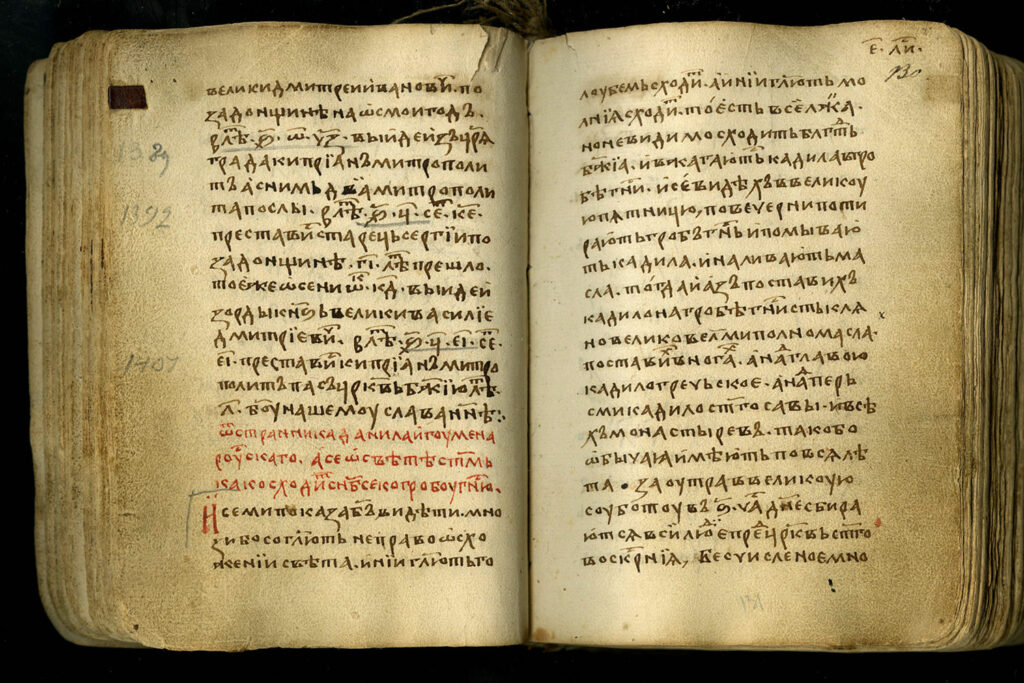 великидмитреиивановичь. по
задонщинѣнаѡсмоигодъ.
влѣ. ҂ѕ҃. ѡ҃. ч҃з. выидеизъцр҃ѧ
градакипріанъмитрополи
тъаснимъдвамитрополи
тапослы. влѣ. ҂ѕ҃. ц҃. се. ке.
преставис̑старецьсергіипо
задонщинѣ. г҃і. лѣ҃прешло.
тоежеѡсени ѿ. к҃д. выидеи
зордыкн҃зьвеликивасиліе
дмитріеви. влѣ. ҂ѕ҃. ц҃. е҃і. се.
е҃і. преставискипріанъмитро
политъпасъцр҃квьбж҃іюлѣ.
л҃. бг҃оунашемоуславаннѣ:.
ѿстранникаданилаигоумена
роускаго. асеѡсвѣтѣст҃мь
какосходис̑нб҃секогробоуг҃ню.
исемипоказабг҃ъвидѣти. мно
зибосогл҃ють неправоѡсхо
женіисвѣта. иніигл҃ютьго
е҃. ли.
130
лоубемьсходи. аиніигл҃ютьмо
лніѧсходи. тоестьвсележа.
ноневидимосходитьблг҃ть
бж҃іа. ивжагаютькадилавгро
бѣг҃ни. исевидѣхъввеликоу
юпѧтницю, повечернипоти
раютьгробъг҃ньипомываю
тькадила. иналиваютьма
сла. тогдаиазъпоставихъ
кадилонагробѣг҃нистькля
новеликовелмиполномасла.
поставивъвнога. анадглавою
кадилогречьское. анадперь
смикадилост҃госавы. ивсѣ
хъмонастыревъ. такобо
ѡбычаюимѣютьповсѧлѣ
та. заоутраввеликоую
соуботоувъ ѕ҃. ча. дн҃есбира
ютсѧвсилюдіепредцр҃квьст҃го
воскр҃ніѧ, бесчисленоемно
1389
1392
1407
131